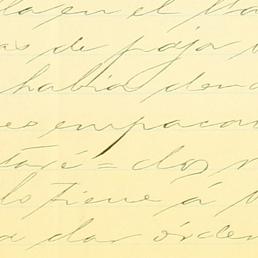 la en el
as de paja
habia den
es empacar
taré = dos
lo tiene á
a dar órden